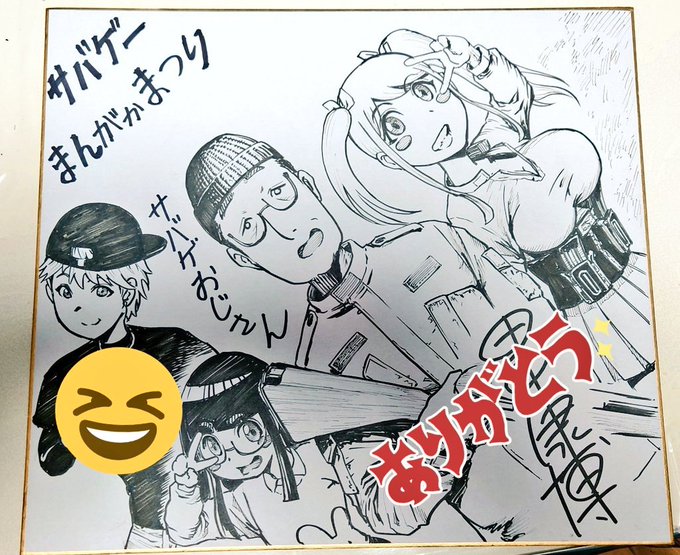 サバゲー
まんがかまつり
サバゲおじさん
ありがとう